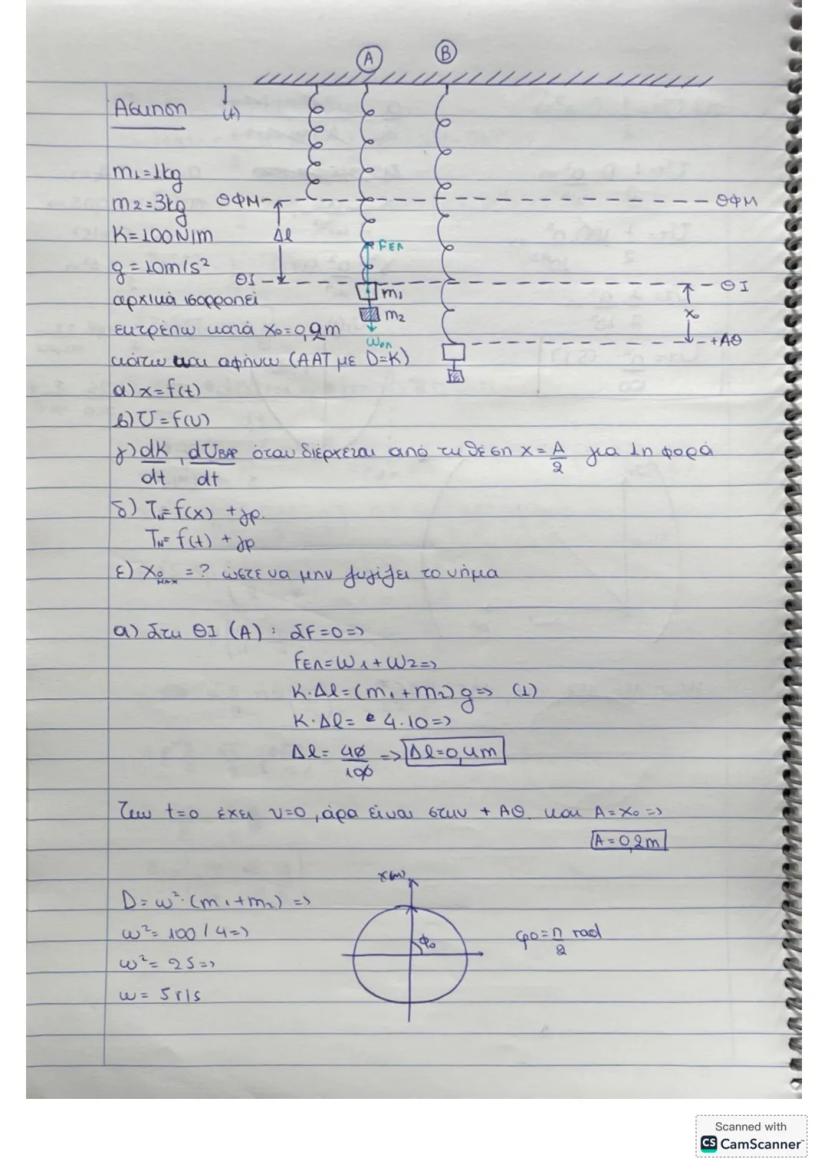 Α Β
Άσκηση (+)
m₁=1kg
m₂=3kg ΘΦΜ ΘΦΜ
K=100N/m Δl
FΕΛ
g=10m/s² ΘΙ m₁ ΘΙ
αρχικά ισορροπεί m₂ x₀
εκτρέπω κατά x₀=0,2m Wολ +ΑΘ
κάτω και αφήνω (ΑΑΤ με D=K)
α) x=f(t)
β) U=f(υ)
γ) dK/dt , dUβαρ/dt όταν διέρχεται από τη θέση x=A/2 για 1η φορά
δ) TN=f(x) + γρ.
TN=f(t) + γρ
ε) x₀max=? ώστε να μην λυγίζει το νήμα
α) Στη ΘΙ (Α): ΣF=0=>
FΕΛ=W₁+W₂=>
K·Δl=(m₁+m₂)g=> (1)
K·Δl= 4·10=>
Δl=40/100 => Δl=0,4m
Την t=0 έχει υ=0, άρα είναι στην +ΑΘ και A=x₀=>
A=0,2m
x(m)
D=ω²·(m₁+m₂)=>
ω²=100/4=> φ₀ φ₀=π/2 rad
ω²=25=>
ω= 5r/s
Scanned with
CS CamScanner